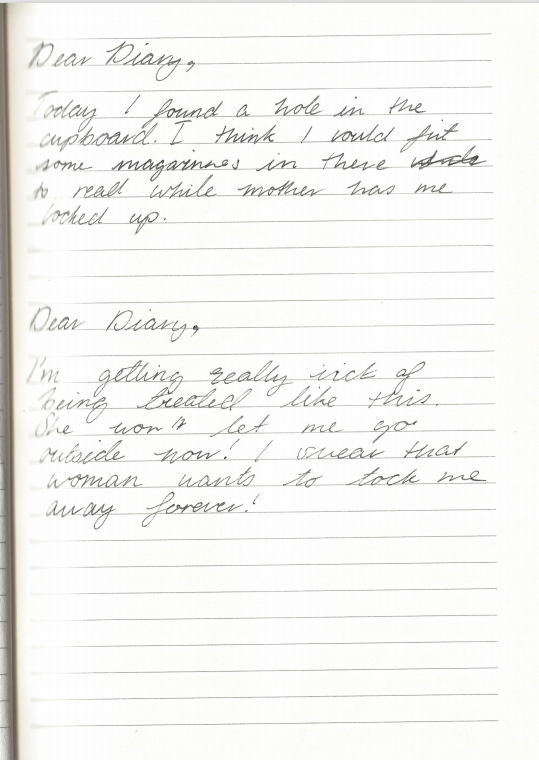 Dear Diary,
Today I found a hole in the
cupboard. I think I could fit
some magazines in there
to read while mother has me
locked up.
Dear Diary,
I'm getting really sick of
being treated like this.
She won't let me go
outside now! I swear that
woman wants to lock me
away forever!